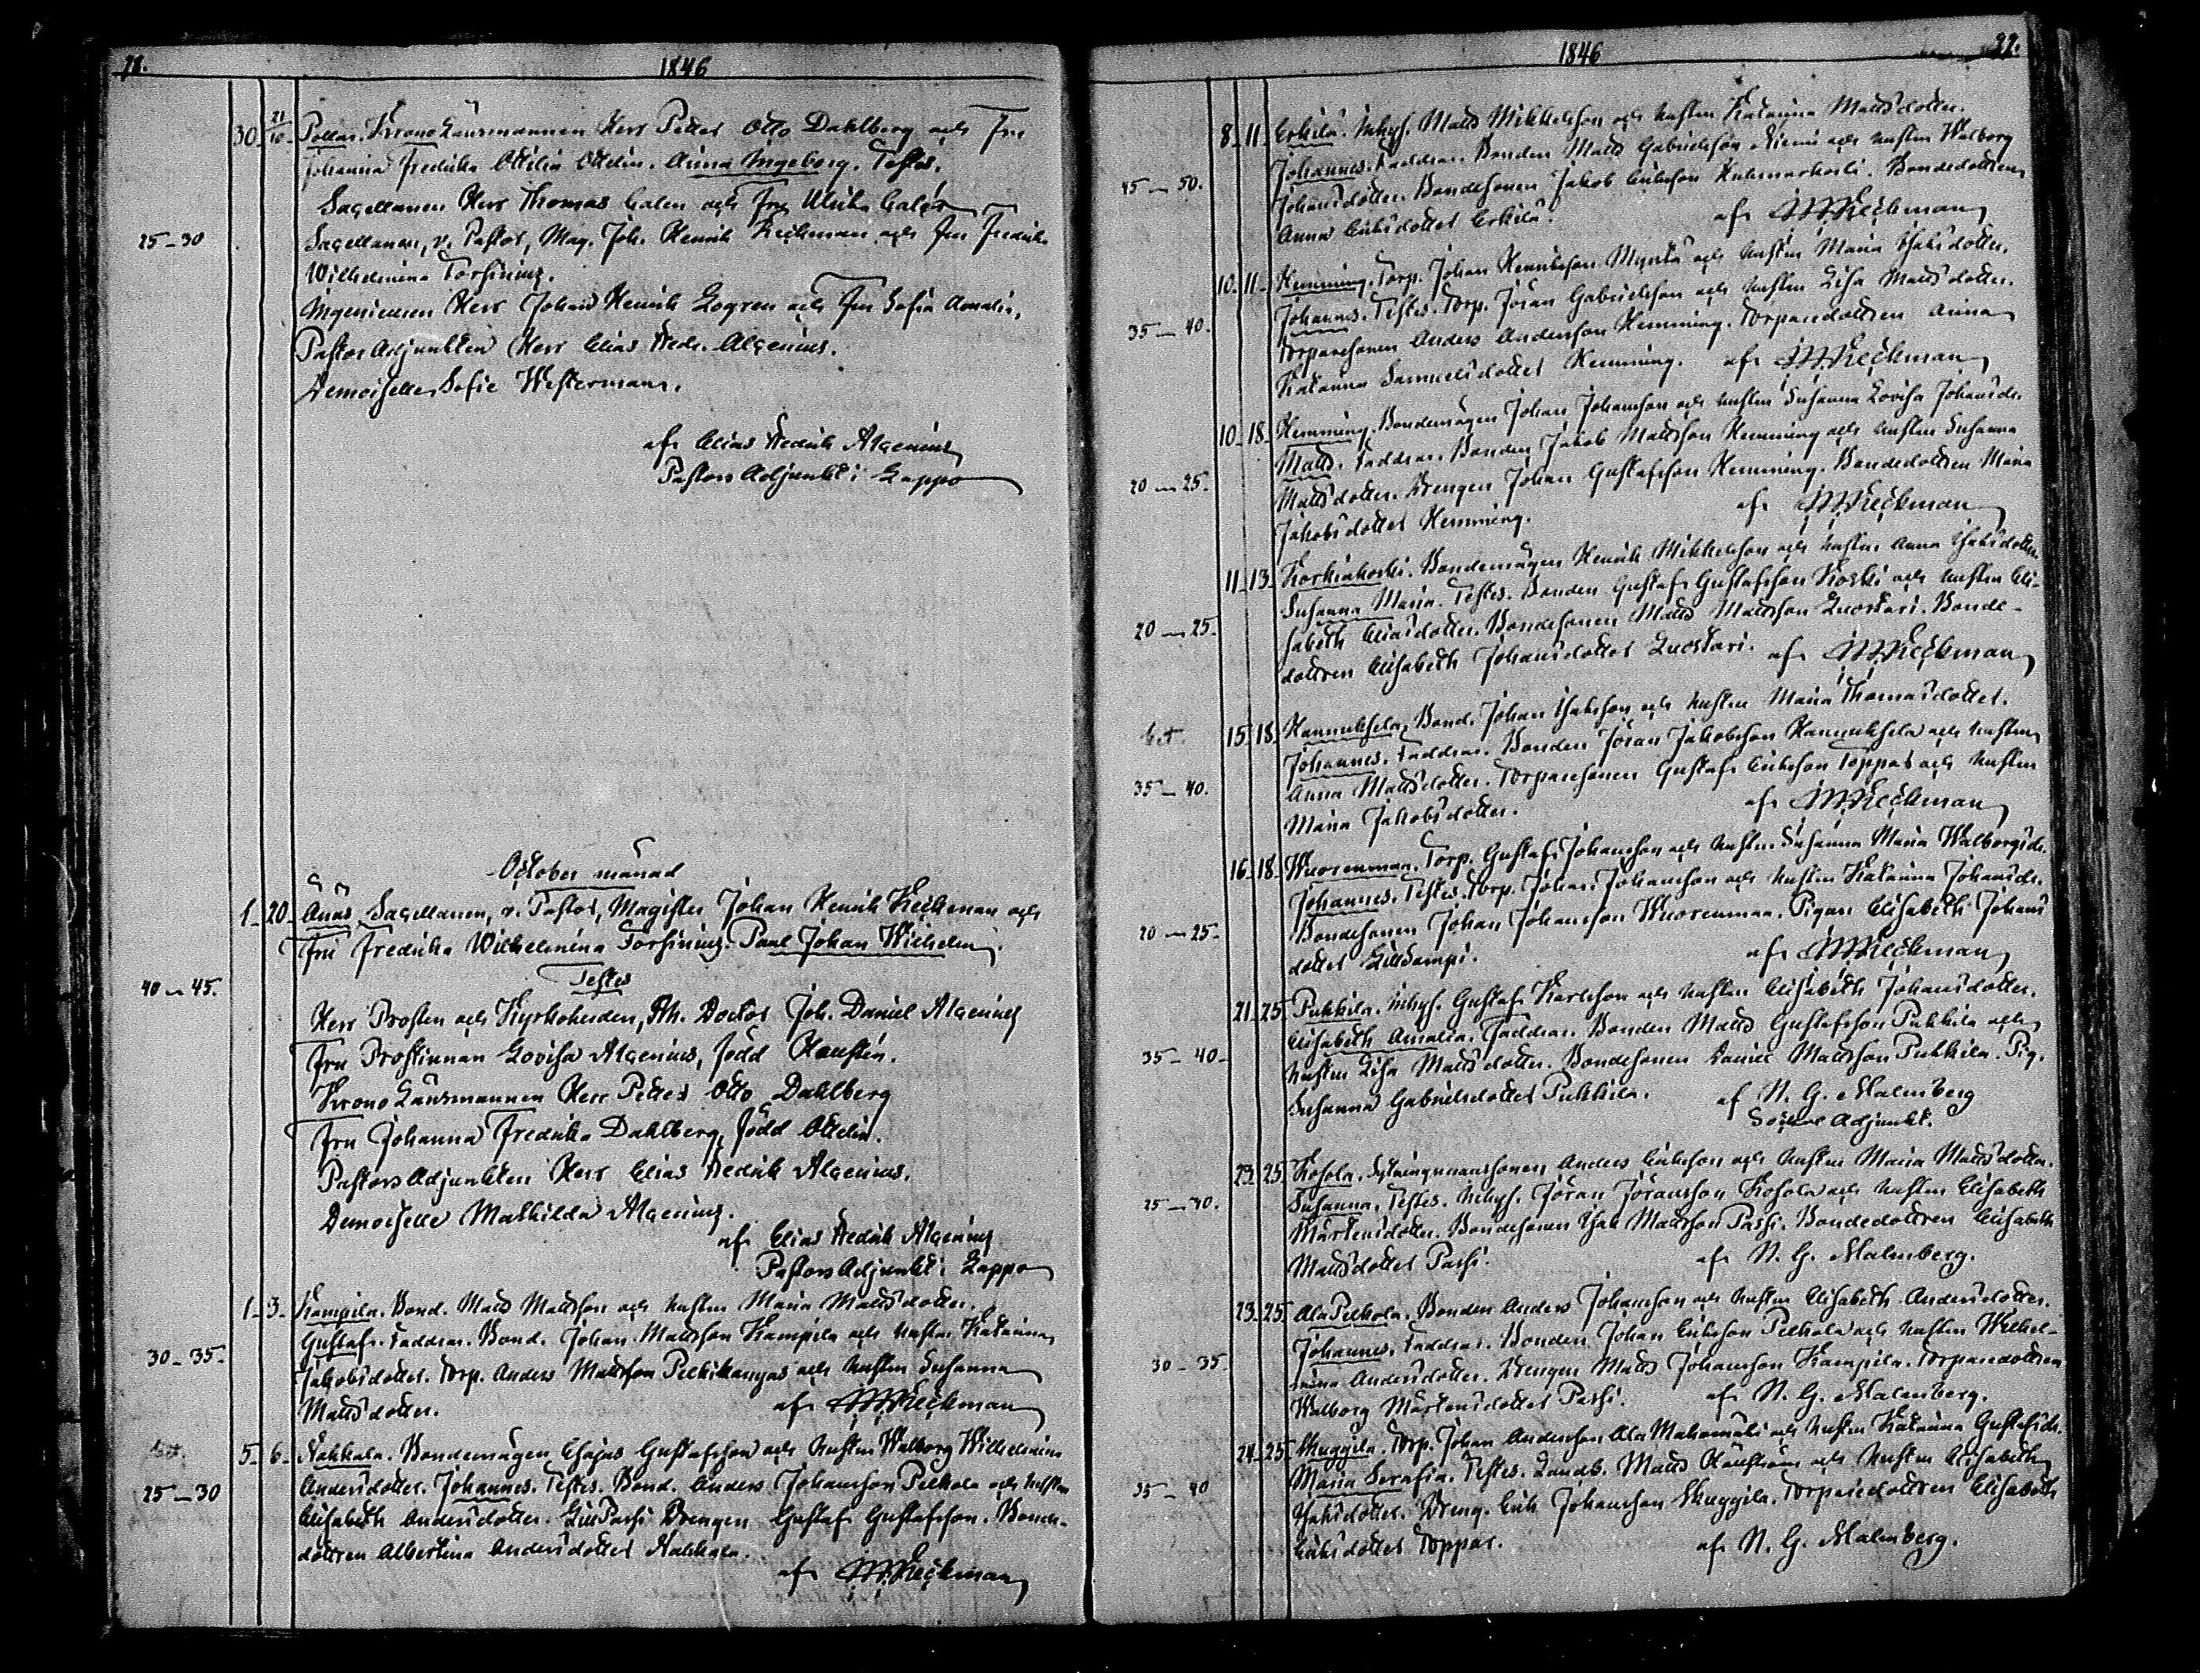 21.
1846
30 21/10 Pollar. Krono Länsmannen Herr Petter Otto Dahlberg och Fru
Johanna Fredrika Ottilia Ottelin. Anna Ingeborg. Testes.
Sacellanen Herr Thomas Calen och Fru Ulrika Calén
25-30 Sacellanen, v. Pastor, Mag. Joh. Henrik Keckman och Fru Fredrika
Wilhelmina Forsinius.
Ingenieuren Herr Johan Henrik Logren och Fru Sofia Amalia,
Pastors Adjunkten Herr Elias Fredr. Alcenius.
Demoiselle Sofie Westerman.
af Elias Fredrik Alcenius
Pastors Adjunkt i Lappo
October månad
1 20 Ånäs Sacellanen, v. Pastor, Magister Johan Henrik Keckman och
Fru Fredrika Wilhelmina Forsinius. Paul Johan Wilhelm.
Testes
40-45.
Herr Prosten och Kyrkoherden, Th. Doctor Joh. Daniel Alcenius
Fru Prostinnan Lovisa Alcenius, född Hanstén.
Krono Länsmannen Herr Petter Otto Dahlberg
Fru Johanna Fredrika Dahlberg, född Ottelin.
Pastors Adjunkten Herr Elias Fredrik Alcenius.
Demoiselle Mathilda Alcenius.
af Elias Fredrik Alcenius
Pastors Adjunkt i Lappo
1 3 Kampila. Bond. Matts Mattsson och hustru Maria Mattsdotter.
Gustaf. Faddrar. Bond. Johan Mattsson Kampila och hustru Katarina
30-35. Jakobsdotter. Torp. Anders Mattsson Pelkikangas och hustru Susanna
Mattsdotter. af J.H. Keckman
5 6 Nakkala. Bondemågen Esajas Gustafsson och hustru Walborg Wilhelmina
25-30 Andersdotter. Johannes. Testes. Bond. Anders Johansson Pelkola och hustru
Elisabeth Andersdotter. Lill Passi Drengen Gustaf Gustafsson. Bonde-
dottren Albertina Andersdotter Nakkala.
af J.H. Keckman
1846
22.
8 11 Erkilä. Inhys. Matts Mikkelsson och hustru Katarina Mattsdotter.
Johannes. Faddrar. Bonden Matts Gabrielsson Niemi och hustru Walborg
45-50. Johansdotter. Bondesonen Jakob Eriksson Kuhnarkoski. Bondedottren
Anna Eriksdotter Erkilä. af J.H. Keckman
10 11 Hemming. Torp. Johan Henriksson Myntä och hustru Maria Isaksdotter.
Johannes. Testes. Torp. Jöran Gabrielsson och hustru Lisa Mattsdotter.
35-40. Torparesonen Anders Andersson Hemming. Torparedottren Anna
Katarina Samuelsdotter Hemming. af J.H. Keckman
10 18 Hemming. Bondemågen Johan Johansson och hustru Susanna Lovisa Johansdr.
Matts. Faddrar. Bonden Jakob Mattsson Hemming och hustru Susanna
20-25. Mattsdotter. Drengen Johan Gustafsson Hemming. Bondedottren Maria
Jakobsdotter Hemming. af J.H. Keckman
11 13 Korkiakoski. Bondemågen Henrik Mikkelsson och hustru Anna Isaksdotter.
Susanna Maria. Testes. Bonden Gustaf Gustafsson Koski och hustru Eli-
20-25. sabeth Eliasdotter. Bondesonen Matts Mattsson Luostari. Bonde-
dottren Elisabeth Johansdotter Luostari. af J.H. Keckman
15 18 Hannuksela. Bond. Johan Isaksson och hustru Maria Thomasdotter.
Johannes. Faddrar. Bonden Jöran Jakobsson Hannuksela och hustru
35-40. Anna Mattsdotter. Torparesonen Gustaf Eriksson Toppar och hustru
Maria Jakobsdotter. af J.H. Keckman
16 18 Wuorenmaa. Torp. Gustaf Johansson och hustru Susanna Maria Walborgsdr.
Johannes. Testes. Torp. Johan Johansson och hustru Katarina Johansdr.
20-25. Bondesonen Johan Johansson Wuorenmaa. Pigan Elisabeth Johans
dotter Lillkampi. af J.H. Keckman
21 25 Puhkila. Inhys. Gustaf Karlsson och hustru Elisabeth Johansdotter.
Elisabeth Amalia. Faddrar. Bonden Matts Gustafsson Puhkila och
35-40 hustru Lisa Mattsdotter. Bondesonen Daniel Mattsson Puhkila. Pig.
Susanna Gabrielsdotter Puhkila. af N. G. Malmberg
Sockne Adjunkt.
23 25 Kosola. Sytningmanssonen Anders Eriksson och hustru Maria Mattsdotter.
Susanna. Testes. Inhys. Jöran Jöransson Kosola och hustru Elisabeth
25-30. Mårtensdotter. Bondesonen Isak Mattsson Passi. Bondedottren Elisabeth
Mattsdotter Passi. af N. G. Malmberg.
23 25 Ala Pelkola. Bonden Anders Johansson och hustru Elisabeth Andersdotter.
Johannes. Faddrar. Bonden Johan Eriksson Pelkola och hustru Wilhel-
30-35. mina Andersdotter. Drengen Matts Johansson Kampila. Torparedottren
Walborg Mårtensdotter Passi. af N. G. Malmberg.
24 25 Skuggila. Torp. Johan Andersson Ala Mahomäki och hustru Katarina Gustafsdr.
Maria Serafia. Testes. Landb. Matts Hänström och hustru Elisabeth
35-40 Isaksdotter. Dreng. Erik Johansson Skuggila. Torparedottren Elisabeth
Eriksdotter Toppar. af N. G. Malmberg.